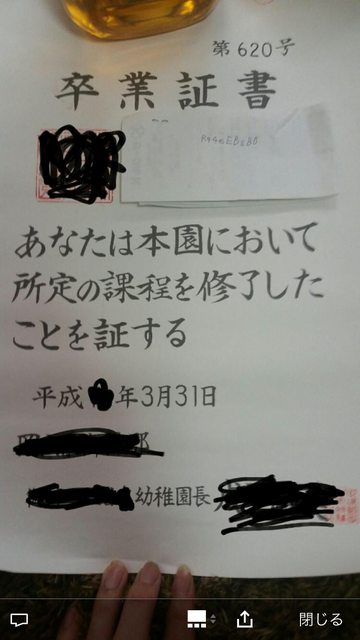 第620号
卒業証書
あなたは本園において
所定の課程を修了した
ことを証する
平成 年3月31日
幼稚園長
閉じる